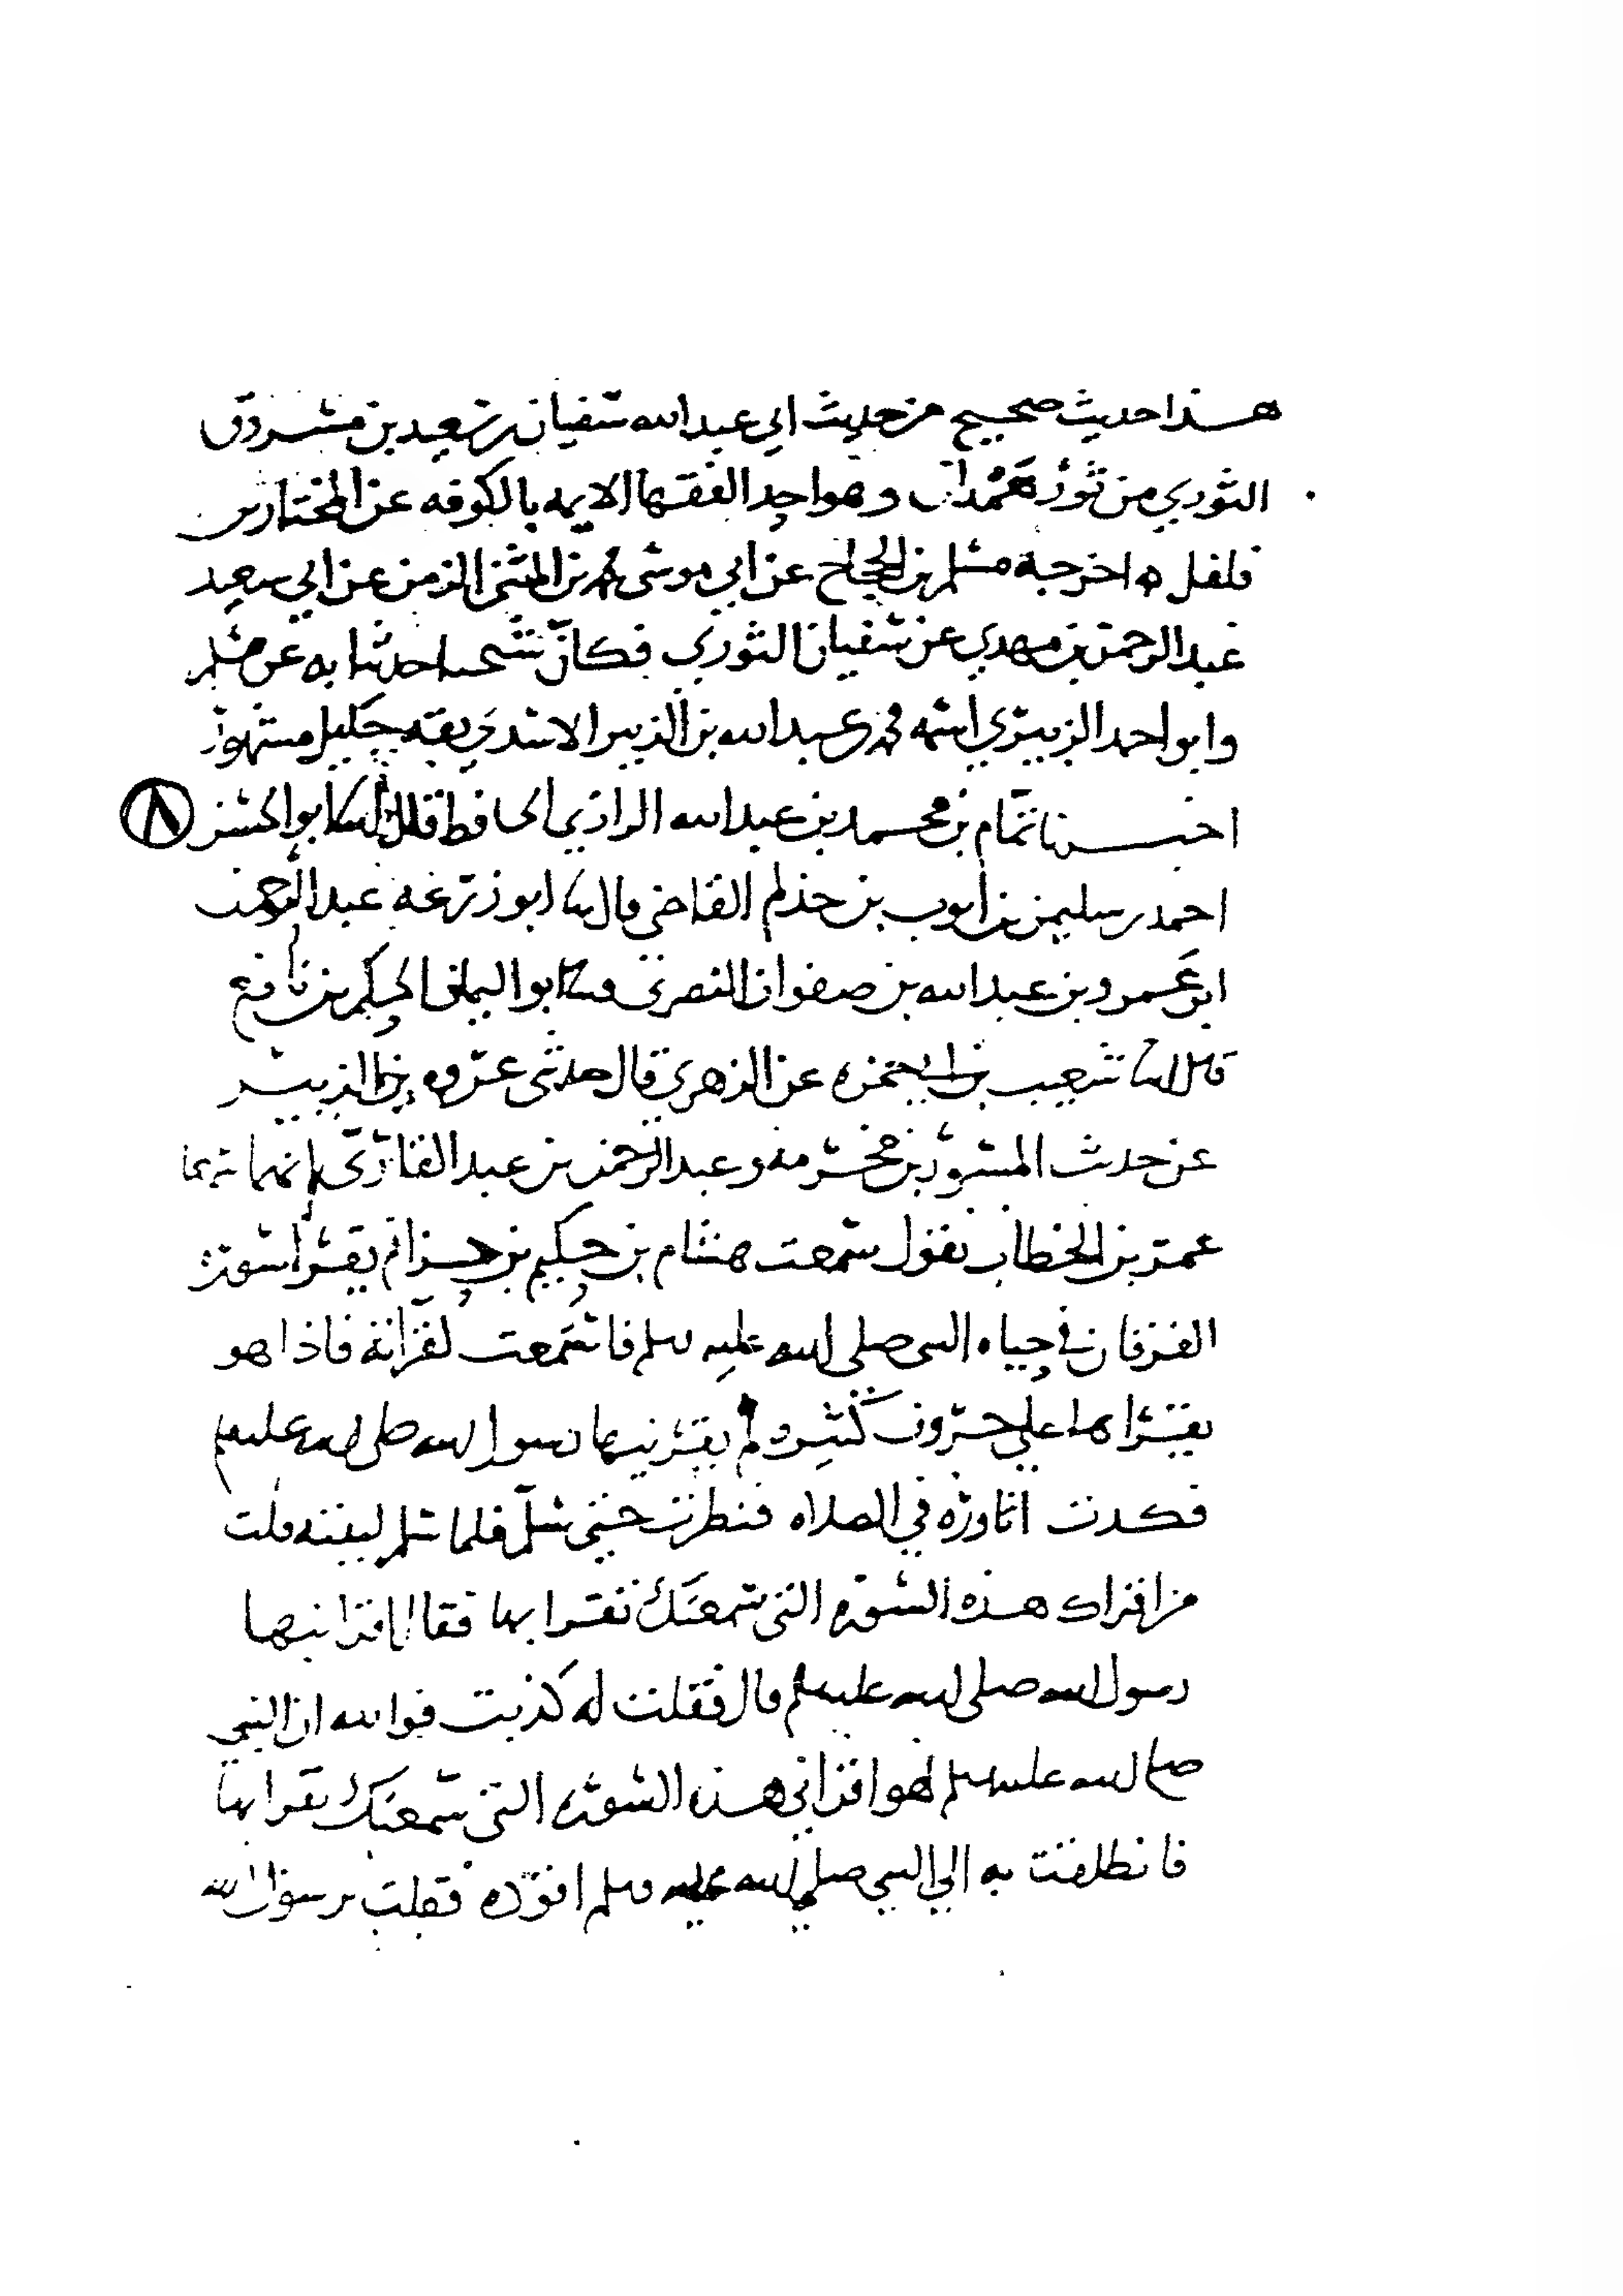 هذا حديث صحيح من حديث ابي عبد الله سفيان بن سعيد بن مسروق
الثوري من ثور همدان وهو احد الفقها الايمه بالكوفه عن المختار بن
فلفل اخرجه مسلم بن الحجاج عن ابي موسى محمد بن المثنى الزمن عن ابي سعيد
عبد الرحمن بن مهدي عن سفيان الثوري فكان شيخنا حدثنا به عن مسلم
وابو احمد الزبيري اسمه محمد بن عبد الله بن الزبير الاسدي ثقه جليل مشهور
اخبرنا تمام بن محمد بن عبد الله الرازي الحافظ قال ابو الحسن ٨
احمد بن سليمن بن ايوب بن حذلم القاضي قال نا ابو زرعه عبد الرحمن
ابن عمرو بن عبد الله بن صفوان النصري نا ابو اليمان الحكم بن نافع
قال انا شعيب بن ابي حمزه عن الزهري قال حدثني عروه بن الزبير
عن حديث المسور بن مخرمه وعبد الرحمن بن عبد القاري انهما سمعا
عمر بن الخطاب يقول سمعت هشام بن حكيم بن حزام يقرا سوره
الفرقان في حياه النبي صلى الله عليه وسلم فاستمعت لقرانه فاذا هو
يقراها على حروف كثيره لم يقرنيها رسول الله صلى الله عليه وسلم
فكدت اثاوره في الصلاه فنظرت حتى سلم فلما سلم لببته قلت
من اقراك هذه السوره التي سمعتك تقرا بها فقال اقرانيها
رسول الله صلى الله عليه وسلم قال فقلت له كذبت فوالله ان النبي
صلى الله عليه وسلم لهو اقراني هذه السوره التي سمعتك تقرا بها
فانطلقت به الي النبي صلى الله عليه وسلم اقوده فقلت يرسول الله